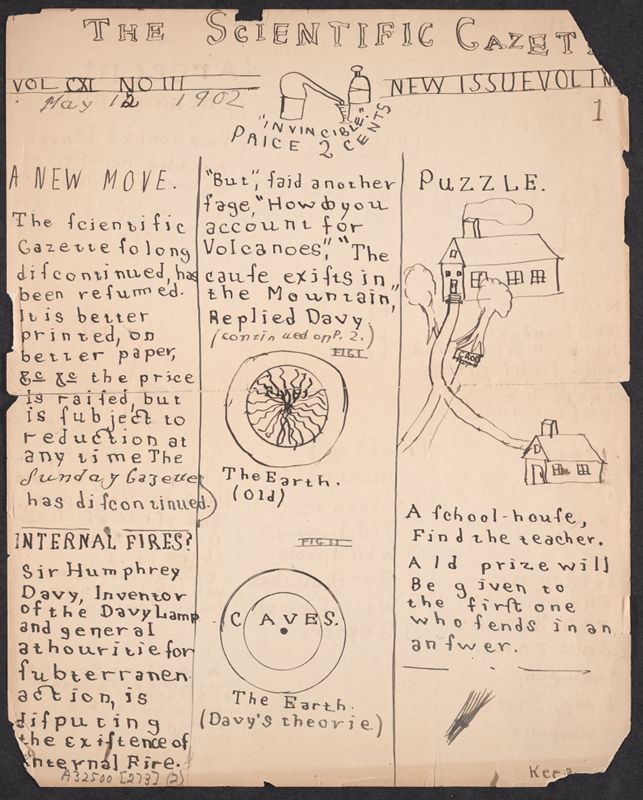 THE SCIENTIFIC GAZET
VOL CXI NO III
NEW ISSUE VOL I N
May 12 1902
1
"INVINCIBLE"
PRICE 2 CENTS
A NEW MOVE.
The ſcientific
Gazette ſo long
diſcontinued, has
been reſumed.
It is better
printed, on
better paper,
&c &c the price
is raiſed, but
is ſubject to
reduction at
any time The
Sunday Gazette
has diſcontinued.
INTERNAL FIRES?
Sir Humphrey
Davy, Inventor
of the Davy Lamp
and general
athouritie for
ſubterranen
action, is
diſputing
the exiſtence of
Internal Fire.
"But", ſaid another
ſage, "How do you
account for
Volcanoes", "The
cauſe exiſts in
the Mountain",
Replied Davy
(continued on P. 2.)
FIG I
FIRES
The Earth.
(Old)
FIG II
CAVES.
The Earth.
(Davy's theorie.)
PUZZLE.
A ſchool-houſe,
Find the teacher.
A 1d prize will
Be given to
the firſt one
who ſends in an
anſwer.
A32500 [273] (2)